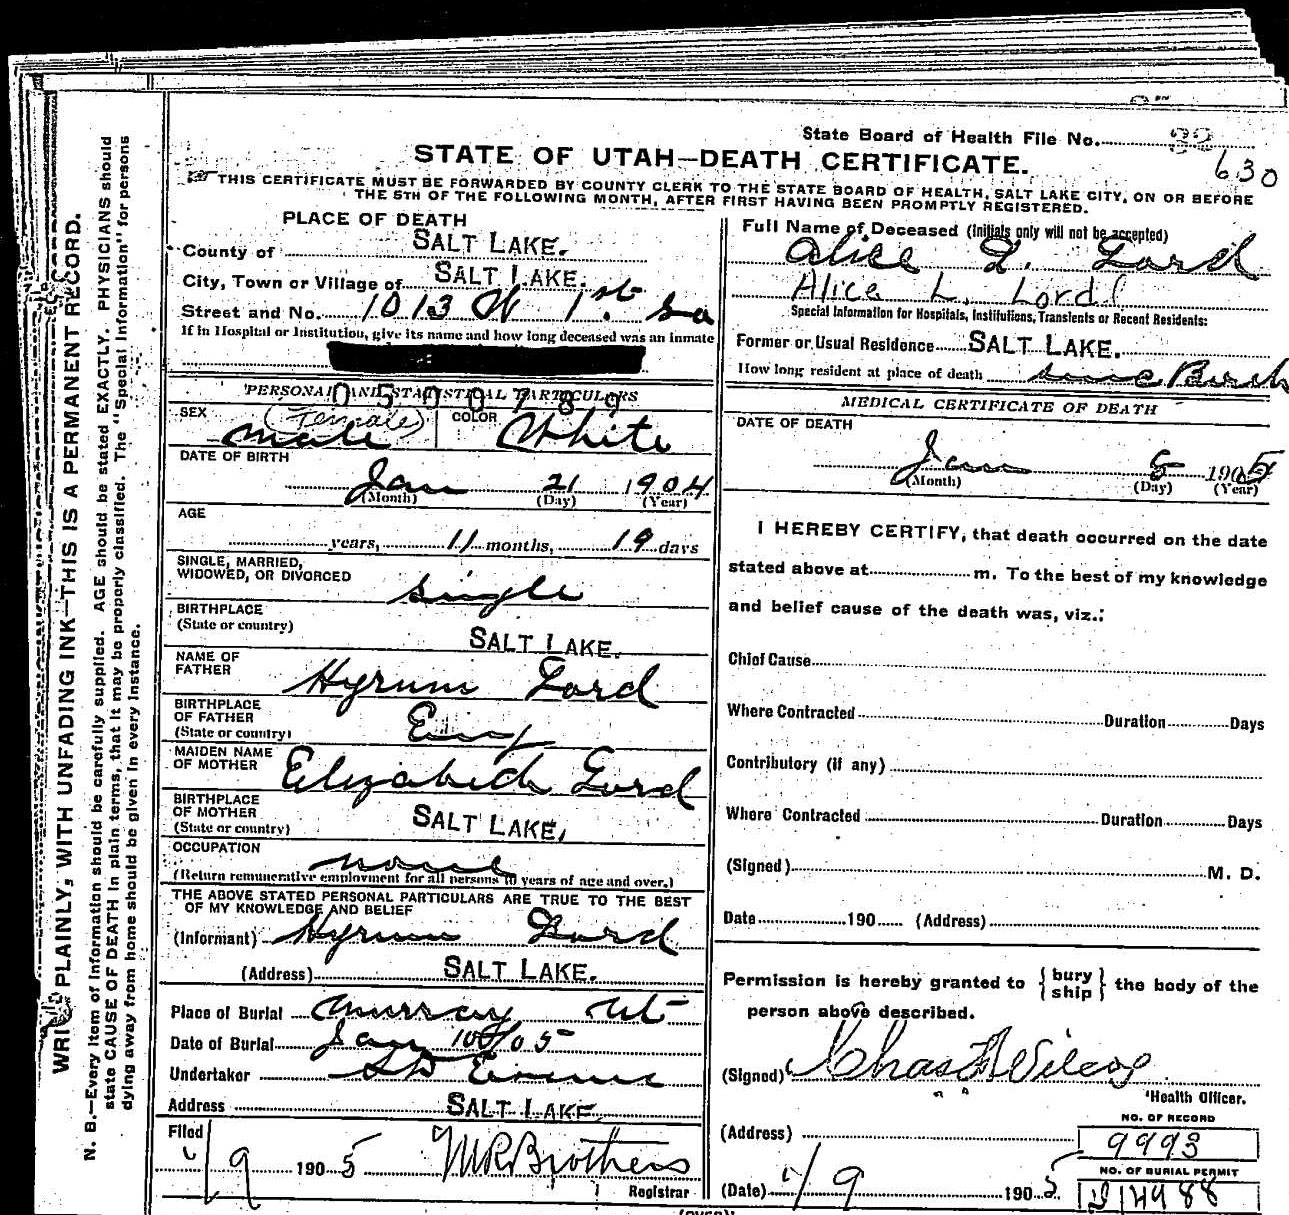 State Board of Health File No.
630
STATE OF UTAH—DEATH CERTIFICATE.
THIS CERTIFICATE MUST BE FORWARDED BY COUNTY CLERK TO THE STATE BOARD OF HEALTH, SALT LAKE CITY, ON OR BEFORE
THE 5TH OF THE FOLLOWING MONTH, AFTER FIRST HAVING BEEN PROMPTLY REGISTERED.
WRITE PLAINLY, WITH UNFADING INK—THIS IS A PERMANENT RECORD.
N. B.—Every item of information should be carefully supplied. AGE should be stated EXACTLY. PHYSICIANS should
state CAUSE OF DEATH in plain terms, that it may be properly classified. The "Special Information" for persons
dying away from home should be given in every instance.
PLACE OF DEATH
County of SALT LAKE.
City, Town or Village of SALT LAKE.
Street and No. 1013 W 1st So
If in Hospital or Institution, give its name and how long deceased was an inmate
PERSONAL AND STATISTICAL PARTICULARS
0500789
SEX (Female) Male
COLOR White
DATE OF BIRTH
Jan 21 1904
(Month) (Day) (Year)
AGE
years, 11 months, 19 days
SINGLE, MARRIED,
WIDOWED, OR DIVORCED single
BIRTHPLACE
(State or country) SALT LAKE.
NAME OF
FATHER Hyrum Lord
BIRTHPLACE
OF FATHER
(State or country) Eng
MAIDEN NAME
OF MOTHER Elizabeth Lord
BIRTHPLACE
OF MOTHER
(State or country) SALT LAKE.
OCCUPATION none
(Return remunerative employment for all persons 10 years of age and over.)
THE ABOVE STATED PERSONAL PARTICULARS ARE TRUE TO THE BEST
OF MY KNOWLEDGE AND BELIEF
(Informant) Hyrum Lord
(Address) SALT LAKE.
Place of Burial Murray Ut
Date of Burial Jan 10 05
Undertaker S D Evans
Address SALT LAKE
Filed
1/9 1905 M R Brothers
Registrar
Full Name of Deceased (Initials only will not be accepted)
Alice L. Lord
Alice L. Lord
Special Information for Hospitals, Institutions, Transients or Recent Residents:
Former or Usual Residence SALT LAKE.
How long resident at place of death since Birth
MEDICAL CERTIFICATE OF DEATH
DATE OF DEATH
Jan 1905
(Month) (Day) (Year)
I HEREBY CERTIFY, that death occurred on the date
stated above at m. To the best of my knowledge
and belief cause of the death was, viz.:
Chief Cause
Where Contracted Duration Days
Contributory (if any)
Where Contracted Duration Days
(Signed) M. D.
Date 190 (Address)
Permission is hereby granted to {bury ship} the body of the
person above described.
(Signed) Chas Wilcox
Health Officer.
(Address)
NO. OF RECORD
9993
NO. OF BURIAL PERMIT
(Date) 1/9 1905
(OVER):